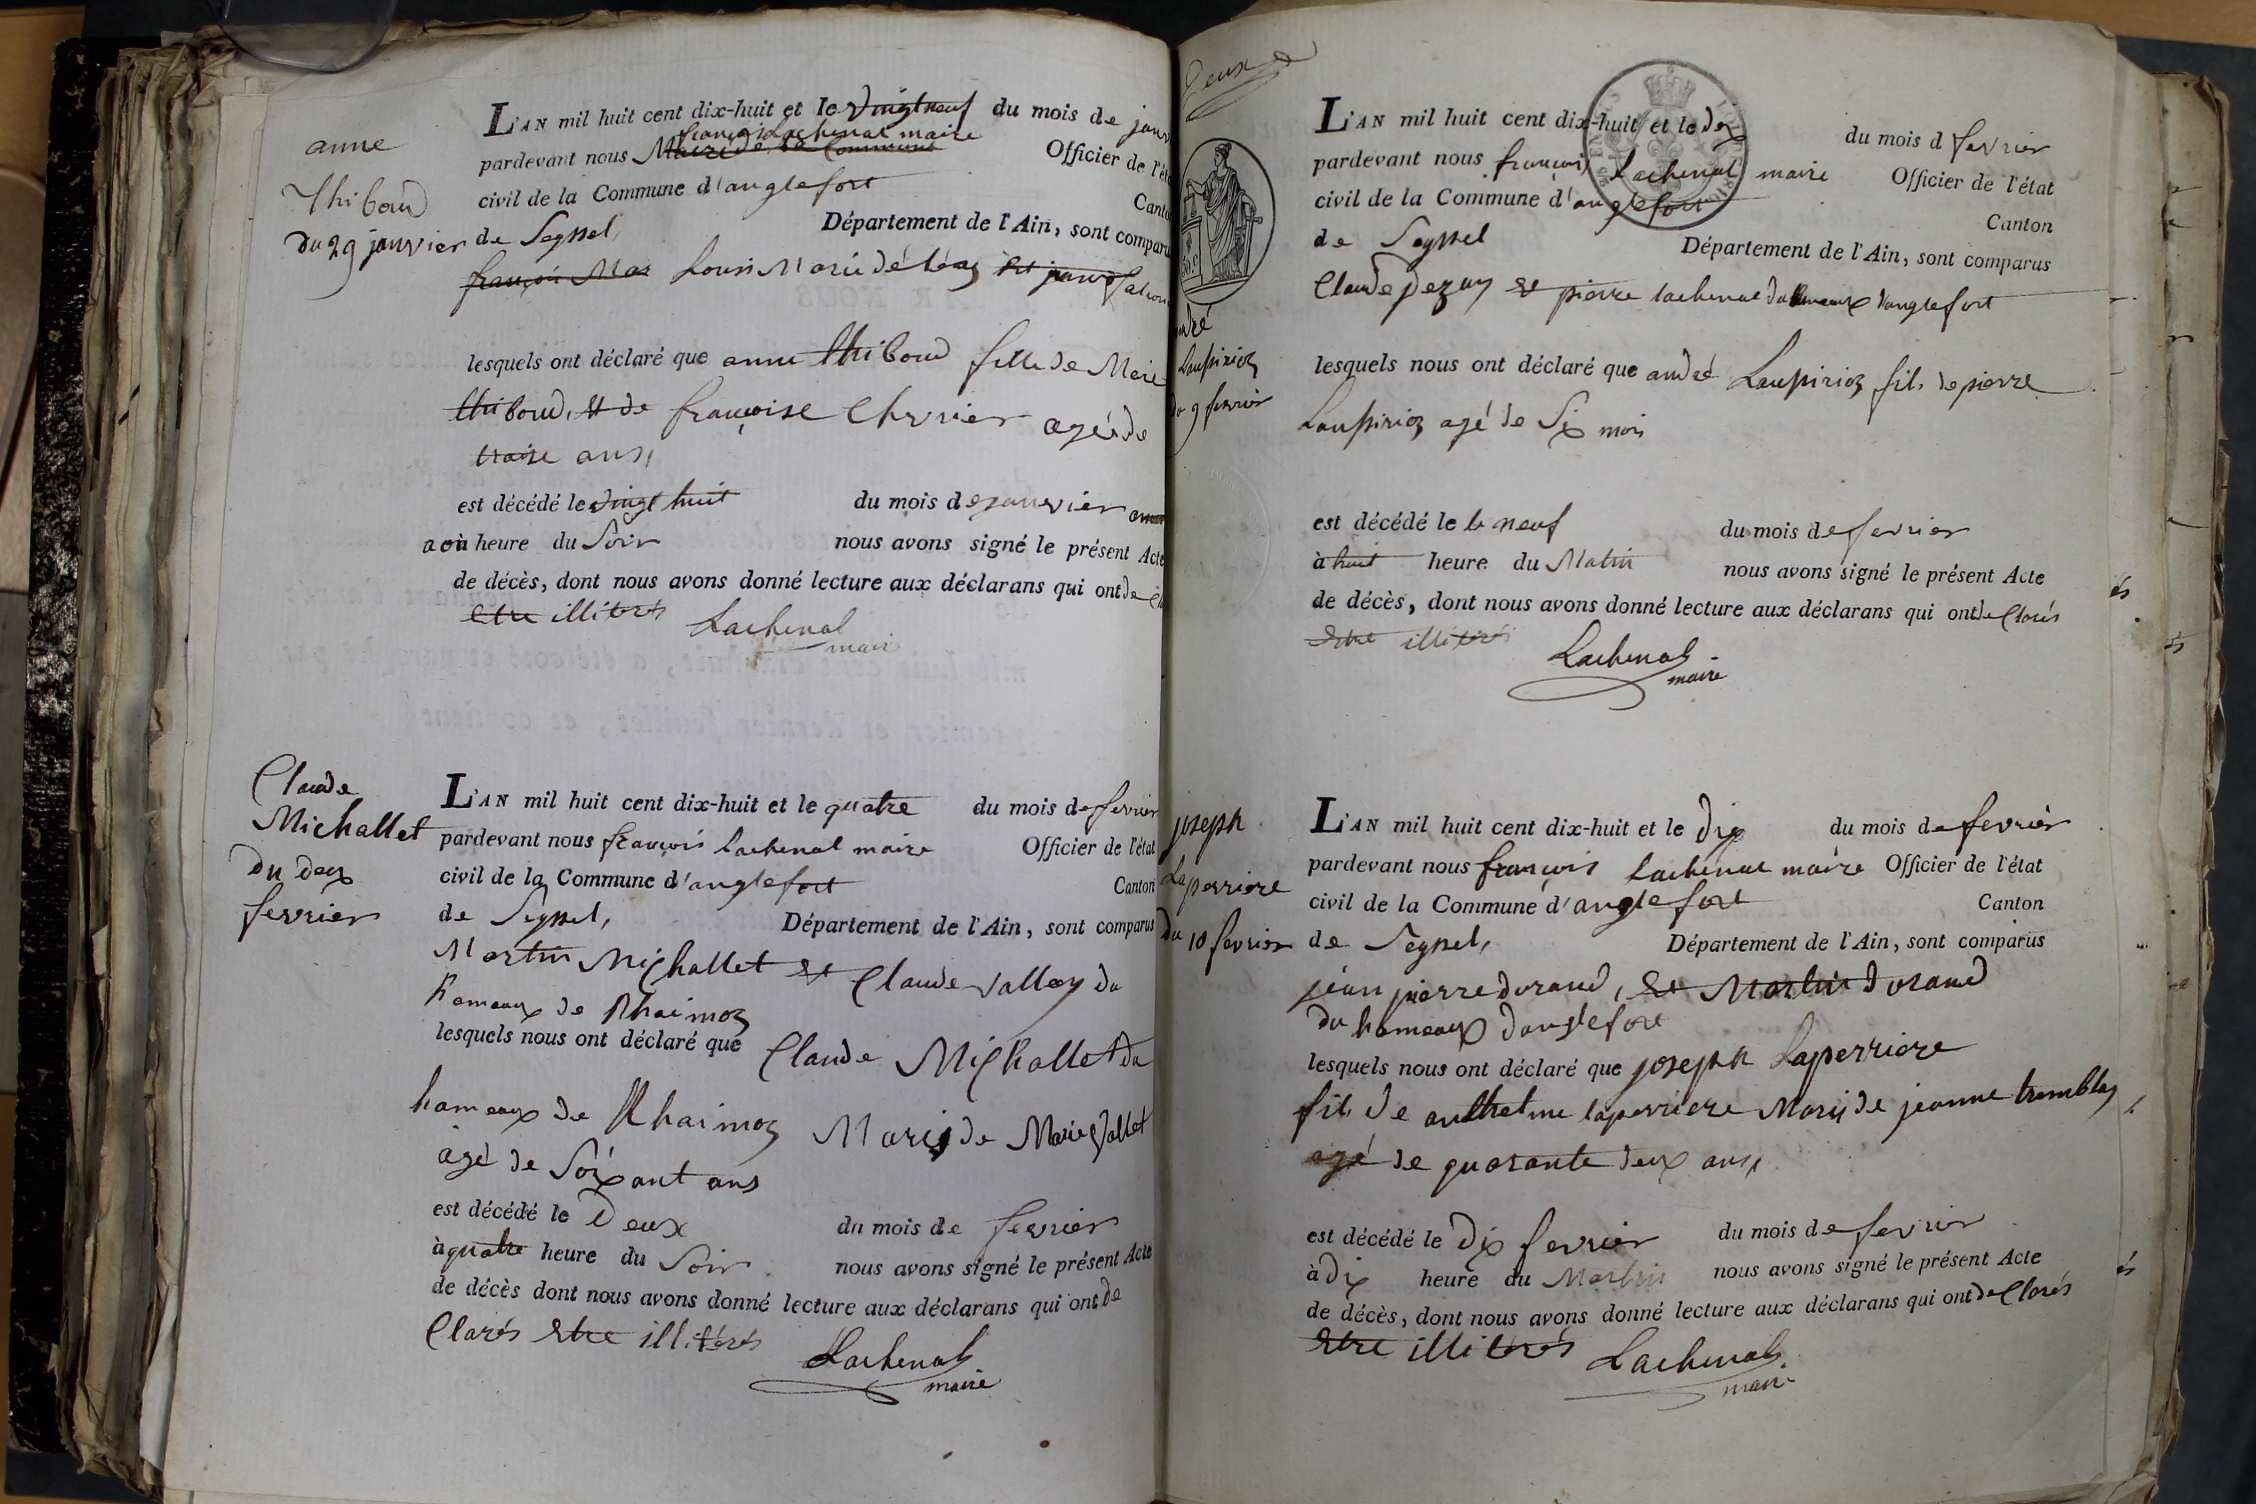 anne
Thiboud
du 29 janvier
L'AN mil huit cent dix-huit et le vingt neuf du mois de janv
françois Lachenal maire
pardevant nous Officier de l'éta
civil de la Commune d'anglefort Canto
de Seyssel, Département de l'Ain, sont comparu
Louis Marie
lesquels ont déclaré que anne thiboud fille de
thiboud, et de françoise Chevrier agée de
traise ans,
est décédé le vingt huit du mois de janvier
heure du Soir nous avons signé le présent Acte
de décès, dont nous avons donné lecture aux déclarans qui ont de
etre illiterés
Lachenal
maire
Claude
Michallet
du deux
fevrier
L'AN mil huit cent dix-huit et le quatre du mois de fevrier
pardevant nous françois Lachenal maire Officier de l'état
civil de la Commune d'anglefort Canton
de Seyssel, Département de l'Ain, sont comparus
Martin Michallet et Claude vallay du
hameaux de Rhaimoz
lesquels nous ont déclaré que Claude Michallet du
hameaux de Rhaimoz Marij de Marie Jallet
agé de Soixant ans
est décédé le Deux du mois de fevrier
à quatre heure du Soir nous avons signé le présent Acte
de décès dont nous avons donné lecture aux déclarans qui ont de
Clarés etre illiterés
Lachenal
maire
Deux
andré
Laupirioz
du 9 fevrier
L'AN mil huit cent dix-huit et le dix du mois d fevrier
pardevant nous françois Lachenal maire Officier de l'état
civil de la Commune d'anglefort Canton
de Seyssel Département de l'Ain, sont comparus
Claude et pierre lachenal du hameaux danglefort
lesquels nous ont déclaré que andré Laupirioz fils de pierre
Laupirioz agé de Six mois
est décédé le le neuf du mois de fevrier
à huit heure du Matin nous avons signé le présent Acte
de décès, dont nous avons donné lecture aux déclarans qui ont de Clarés
etre illiterés
Lachenal
maire
joseph
Laperriere
du 10 fevrier
L'AN mil huit cent dix-huit et le dix du mois de fevrier
pardevant nous françois Lachenal maire Officier de l'état
civil de la Commune d'anglefort Canton
de Seyssel, Département de l'Ain, sont comparus
jean pierre durand, et Martin durand
du hameaux danglefort
lesquels nous ont déclaré que joseph Laperriere
fils de anthelme laperriere Marij de jeanne tremblay
agé de quarante deux ans,
est décédé le dix fevrier du mois de fevrier
à dix heure du Matin nous avons signé le présent Acte
de décès, dont nous avons donné lecture aux déclarans qui ont de Clarés
etre illiterés
Lachenal
maire